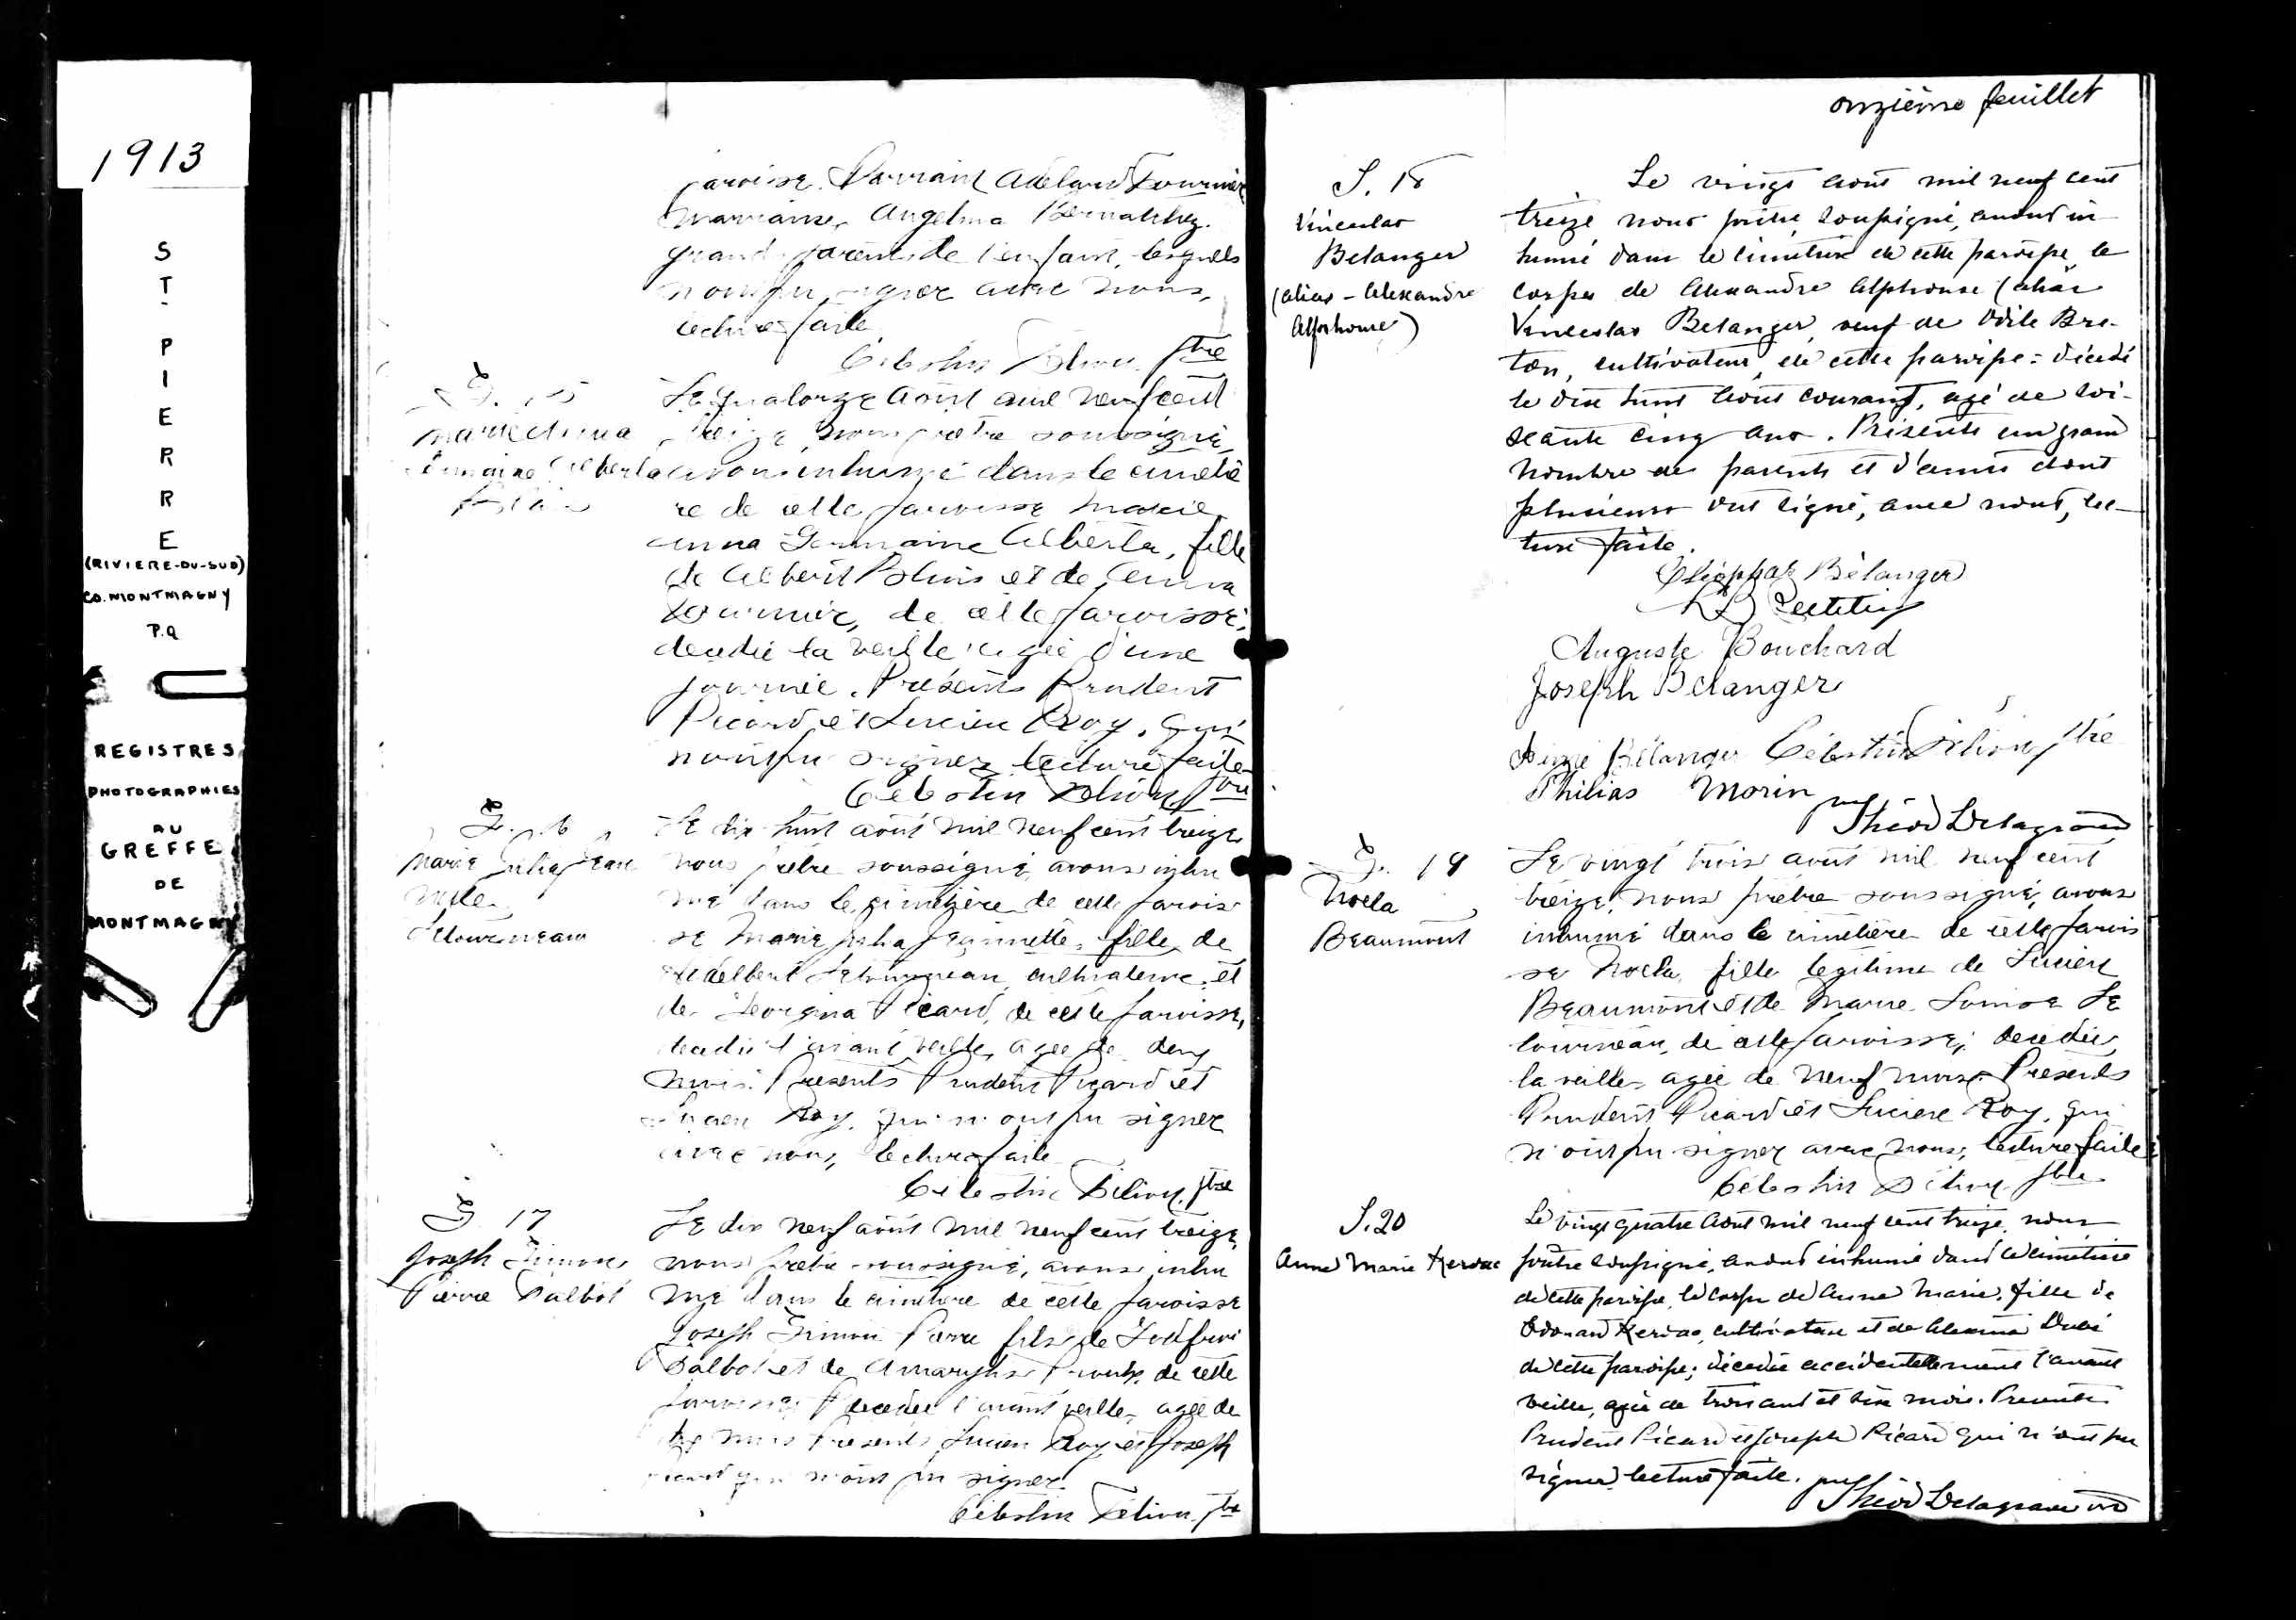 1913
ST-PIERRE
(RIVIERE-DU-SUD)
CO. MONTMAGNY
P.Q
REGISTRES
PHOTOGRAPHIES
AU
GREFFE
DE
MONTMAGNY
paroisse. Parrain Adelard Fournier
marraine, Angelina Bernatchez.
grands parents de l'enfant, lesquels
n'ont pu signer avec nous,
lecture faite
Célestin ptre
S. 15
Marie Anna
Germaine Alberta
Blais
Le quatorze août mil neuf cent
treize, nous prêtre soussigné,
avons inhumé dans le cimetiè
re de cette paroisse Marie
Anna Germaine Alberta, fille
de Albert Blais et de Anna
Fournier, de cette paroisse,
decedée la veille agée d'une
journée. Présents Prudent
Picard et Lucien Roy, qui
n'ont pu signer lecture faite
Célestin ptre
S. 16
Marie Julia Jean
nette
Letourneau
Le dix-huit août mil neuf cent treize
nous prêtre soussigné, avons inhu
mé dans le cimetière de cette parois
se Marie Julia Jeannette, fille de
Adelbert Letourneau, cultivateur et
de Georgina Picard, de cette paroisse,
decedée l'avant veille, agée de deux
mois. Presents Prudent Picard et
Lucien Roy, qui n'ont pu signer
avec nous, lecture faite
Célestin ptre
S. 17
Joseph Simon
Pierre Talbot
Le dix neuf août mil neuf cent treize,
nous prêtre soussigné, avons inhu
mé dans le cimetiere de cette paroisse
Joseph Simon Pierre fils de
Talbot et de Amaryllis Proulx, de cette
paroisse decedée l'avant veille, agée de
mois Presents Lucien Roy et Joseph
Picard qui n'ont pu signer
Célestin ptre
onzième feuillet
S. 18
Vinceslas
Belanger
(alias - Alexandre
Alphonse)
Le vingt août mil neuf cent
treize nous prêtre soussigné, avons in
humé dans le cimetière de cette paroisse le
corps de Alexandre Alphonse (alias
Vinceslas Belanger, veuf de Odile Bre-
ton, cultivateur, de cette paroisse: décedé
le dix huit août courant, agé de soi-
xante cinq ans. Présents un grand
nombre de parents et d'amis dont
plusieurs ont signé, avec nous, lec-
ture faite.
Cléophas Bélanger
Auguste Bouchard
Joseph Belanger
Aimé Bélanger Célestin ptre
Philias Morin
Théod Delagrave
S. 19
Noela
Beaumont
Le vingt trois août mil neuf cent
treize, nous prêtre soussigné, avons
inhumé dans le cimetière de cette parois
se Noela, fille legitime de Lucien
Beaumont et de Marie Louise Le
tourneau, de cette paroisse, decedée,
la veille, agée de neuf mois. Presents
Prudent Picard et Lucien Roy, qui
n'ont pu signer avec nous, lecture faite
Célestin ptre
S. 20
Anne Marie Keroac
Le vingt quatre août mil neuf cent treize, nous
prêtre soussigné, avons inhumé dans le cimetière
de cette paroisse, le corps de Anne Marie, fille de
Edouard Keroac, cultivateur et de Alexina Dubé
de cette paroisse; décedée accidentellement l'avant
veille, agée de trois ans et six mois. Presents
Prudent Picard et Joseph Picard qui n'ont pu
signer, lecture faite.
Théod Delagrave